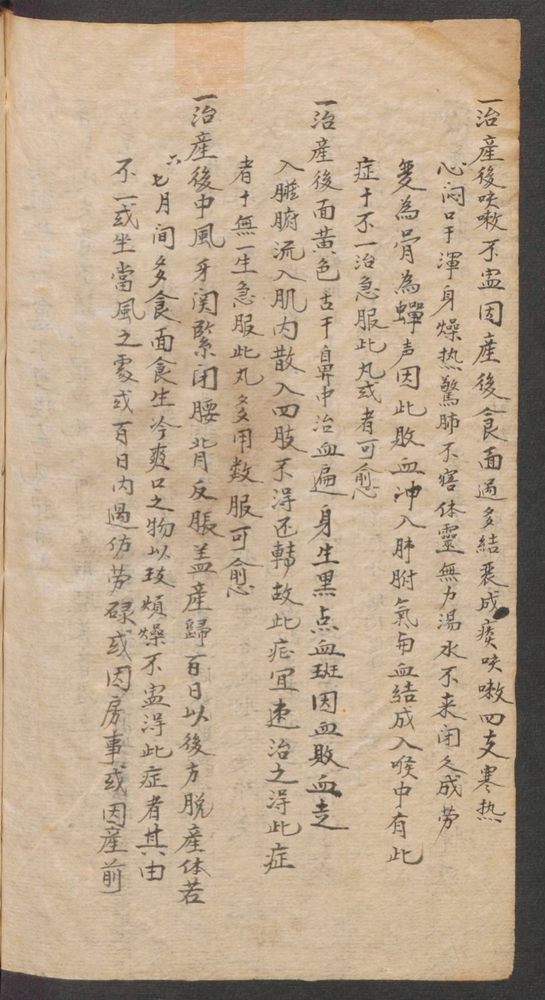 一治產後咳嗽不寍因產後食面過多結裹成痰咳嗽四支寒热
心闷口干渾身燥热驚肺不寍体靈無力湯水不来闭久成劳
变為骨為蟬声因此敗血冲入肺胕氣与血結成入喉中有此
症十不一治急服此丸或者可愈
一治產後面黄色舌干鼻中治血遍身生黑点血斑因血敗血走
入臟腑流入肌内散入四肢不淂还轉故此症宜速治之淂此症
者十無一生急服此丸多用数服可愈
一治產後中風牙関緊闭腰背反脹盖產歸百日以後方脱產体若
六七月间多食面食生冷爽口之物以致煩燥不寍淂此症者其由
不一或坐當風之處或百日内過伤劳碌或因房事或因產前